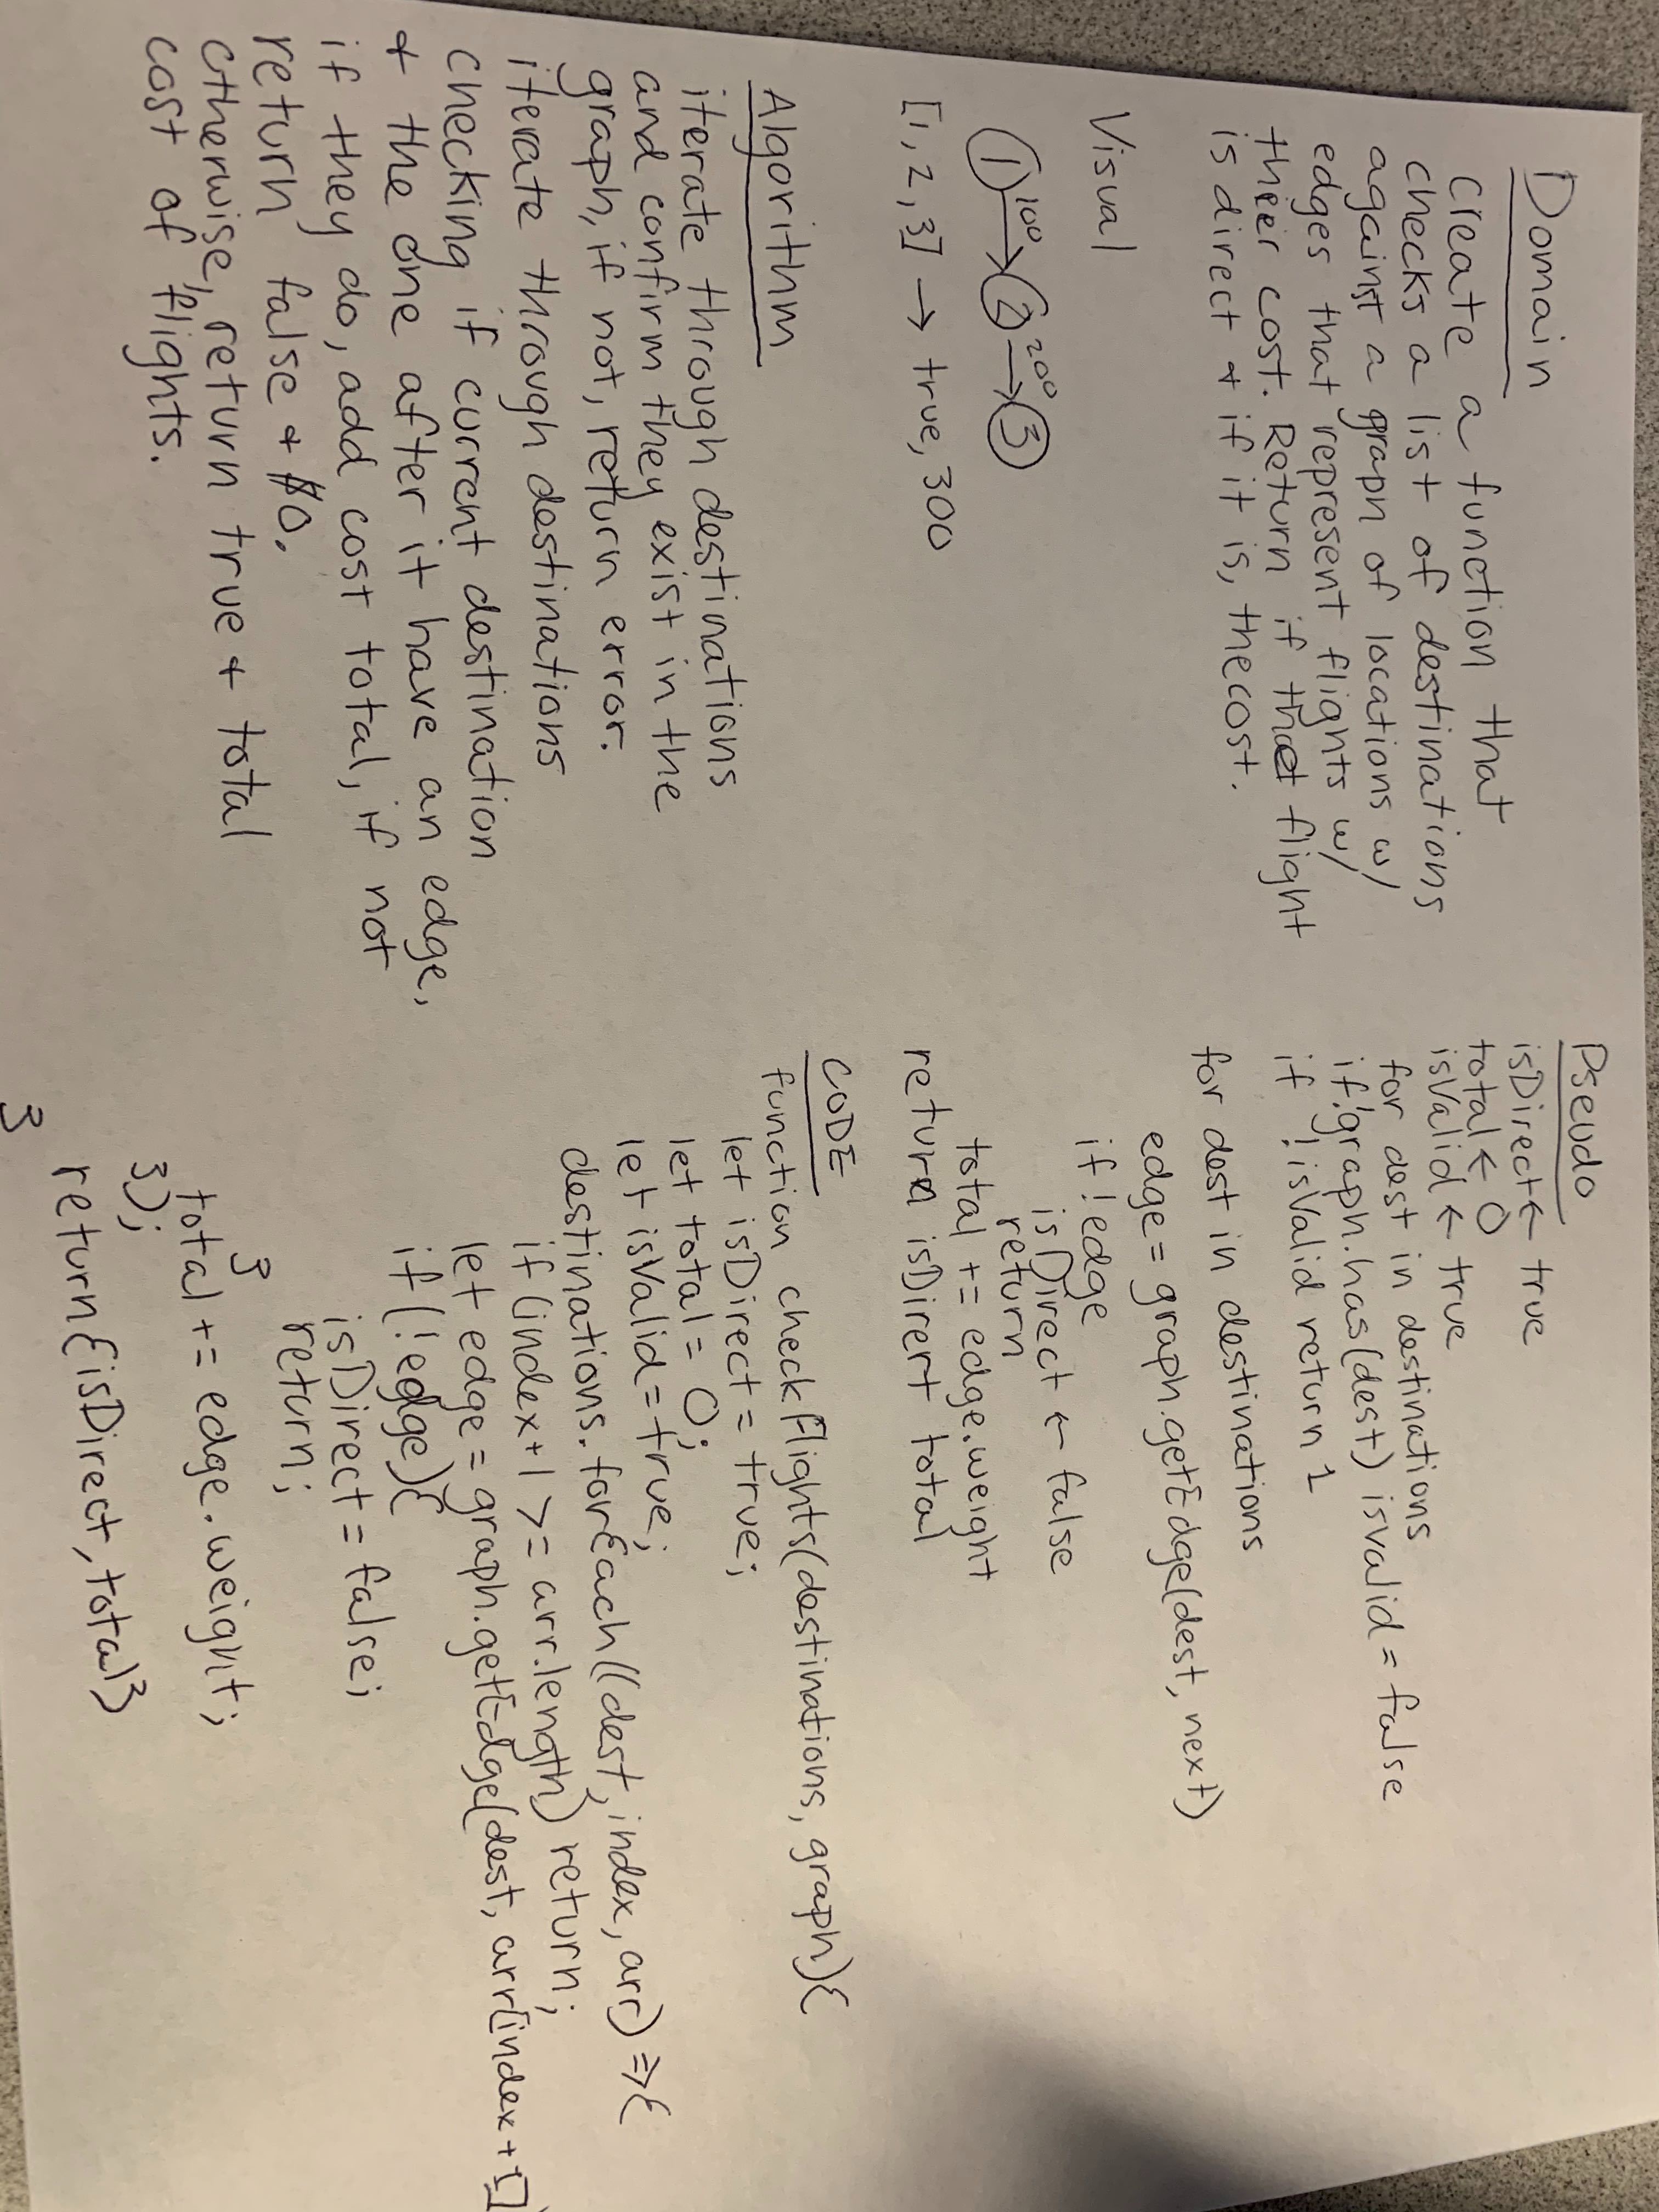 Domain
Create a function that
checks a list of destinations
against a graph of locations w/
edges that represent flights w/
their cost. Return if that flight
is direct + if it is, the cost.
Visual
1 100 → 2 200 → 3
[1, 2, 3] → true, 300
Algorithm
iterate through destinations
and confirm they exist in the
graph, if not, return error.
iterate through destinations
checking if current destination
+ the one after it have an edge,
if they do, add cost total, if not
return false + $0.
otherwise, return true + total
cost of flights.
Pseudo
isDirect ← true
total ← 0
isValid ← true
for dest in destinations
if !graph.has(dest) isvalid = false
if !isValid return 1
for dest in destinations
edge = graph.getEdge(dest, next)
if !edge
isDirect ← false
return
total += edge.weight
return isDirert total
CODE
function checkFlights(destinations, graph){
let isDirect = true;
let total = 0;
let isValid = true;
destinations.forEach((dest, index, arr) => {
if (index+1 >= arr.length) return;
let edge = graph.getEdge(dest, arr[index+1])
if (!edge){
isDirect = false;
return;
}
total += edge.weight;
});
return{isDirect, total}
}